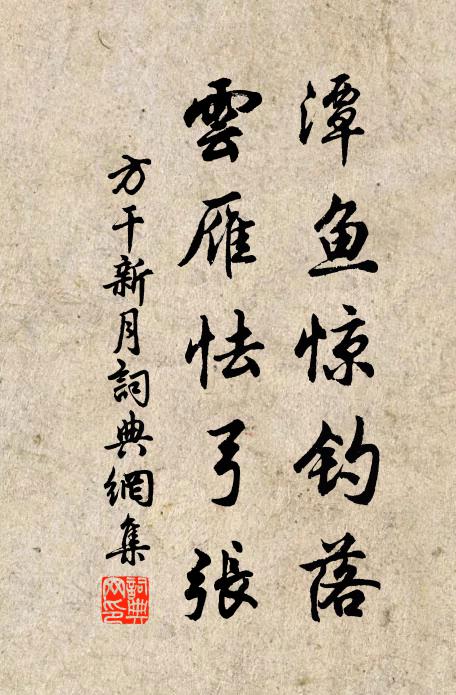 潭鱼惊钓落
雲雁怯弓張
方干新月詞典網集